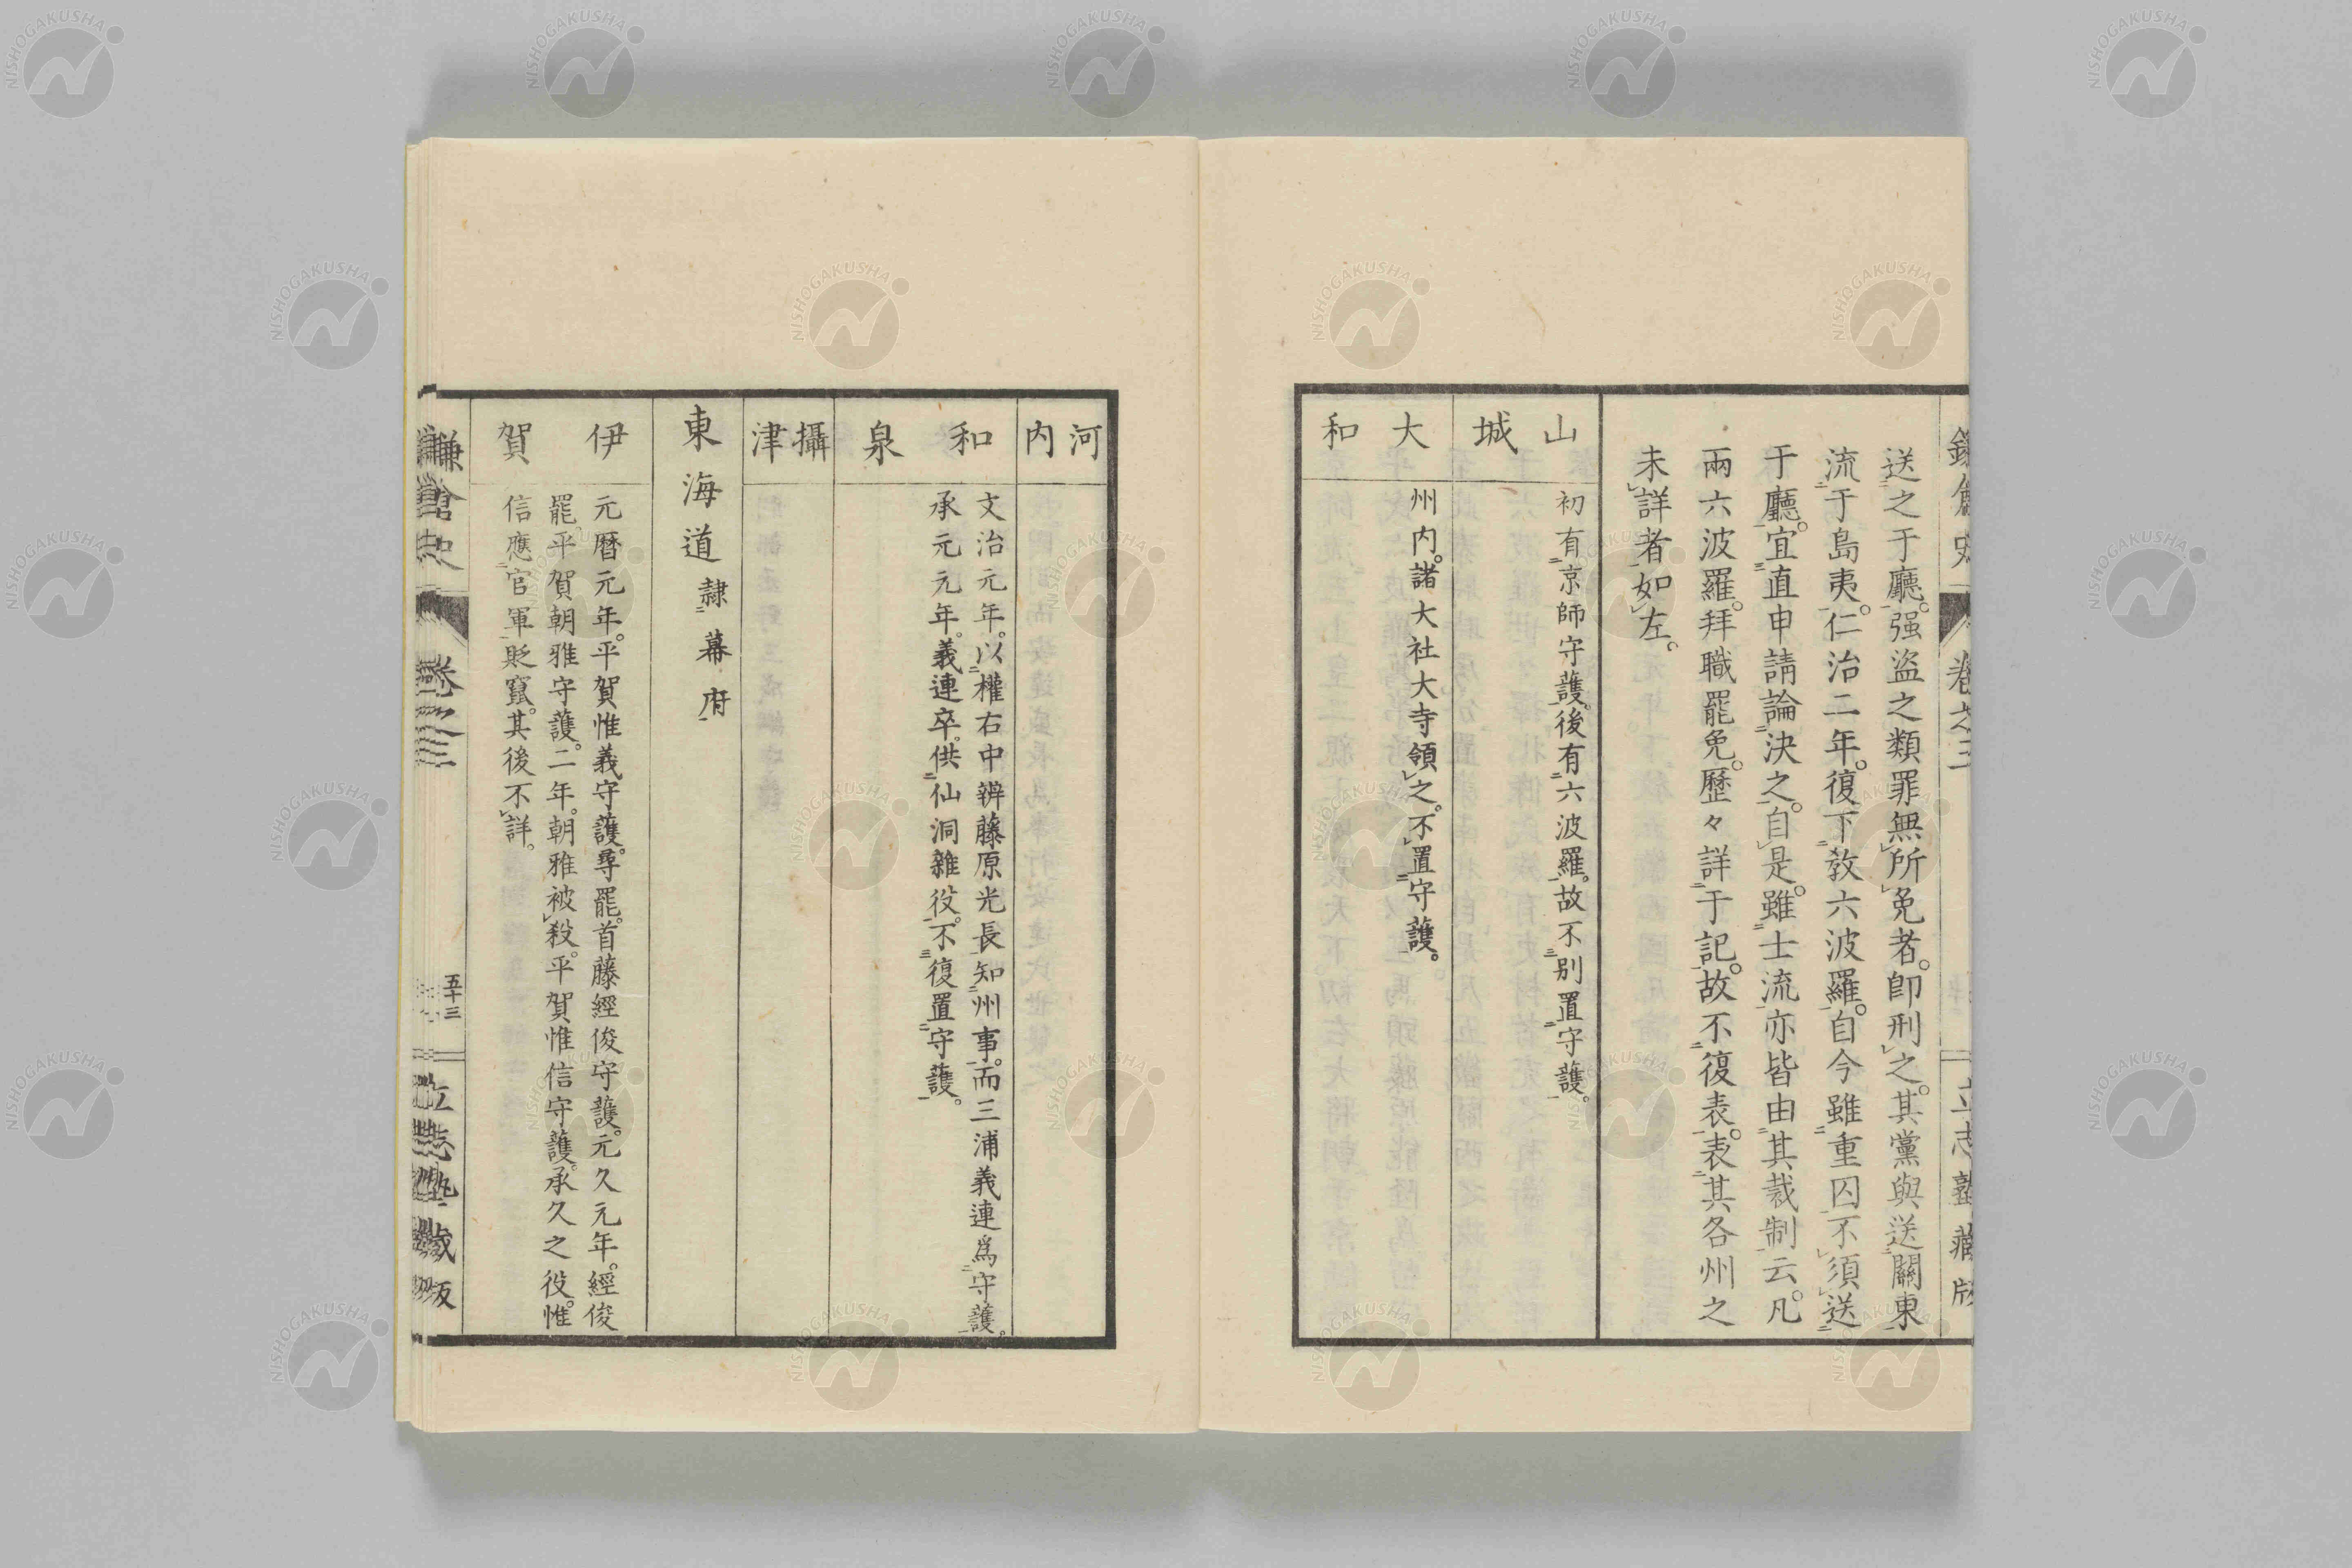 送之于廳。强盜之類罪無所免者。卽刑之。其黨與送關東
流于島夷。仁治二年。復下敎六波羅。自今雖重囚不須送
于廳。宜直申請論決之。自是。雖士流亦皆由其裁制云。凡
兩六波羅。拜職罷免。歷々詳于記。故不復表。表其各州之
未詳者如左。
山城
初有京師守護。後有六波羅。故不別置守護。
大和
州内。諸大社大寺領之。不置守護。
河内
和泉
文治元年。以權右中辨藤原光長知州事。而三浦義連爲守護。
承元元年。義連卒。供仙洞雜役。不復置守護。
攝津
東海道 隷幕府
伊賀
元曆元年。平賀惟義守護。尋罷。首藤經俊守護。元久元年。經俊
罷。平賀朝雅守護。二年。朝雅被殺。平賀惟信守護。承久之役。惟
信應官軍貶竄。其後不詳。
鎌倉史 卷之三 五十三 立志塾藏版
NISHOGAKUSHA